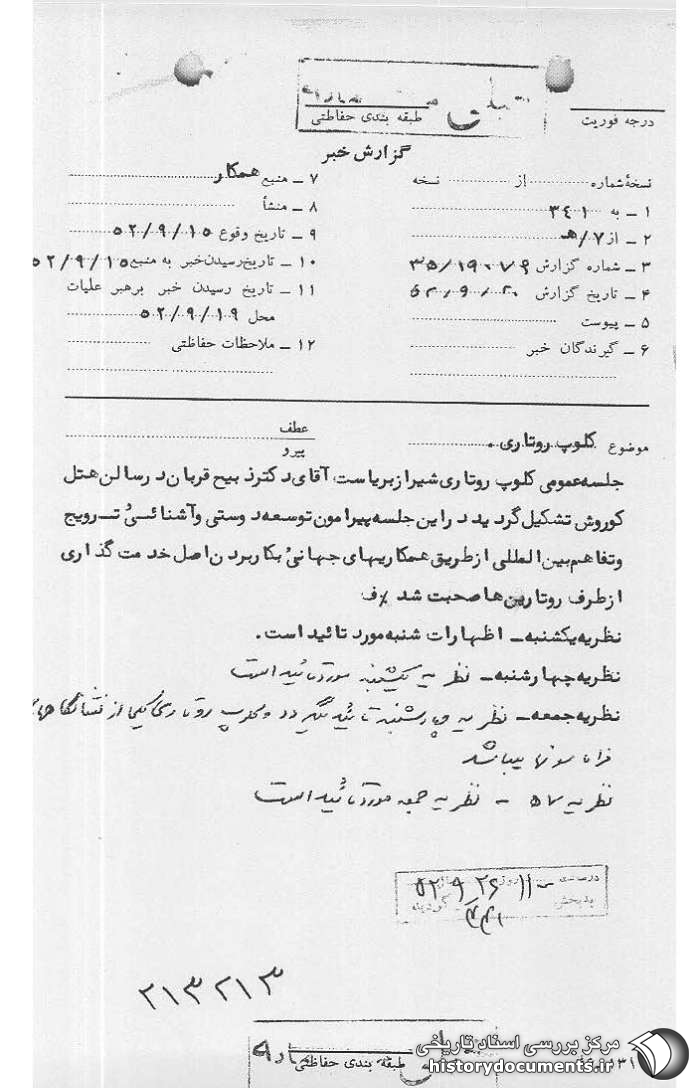 درجه فوریت
طبقه بندی حفاظتی
گزارش خبر
نسخهٔ شماره ............ از ............ نسخه
۱ ـ به ۳۴۱
۲ ـ از ۷/هـ
۳ ـ شماره گزارش ۳۵/۱۹۰۷۶
۴ ـ تاریخ گزارش ۵۲/۹/۲۰
۵ ـ پیوست
۶ ـ گیرندگان خبر
۷ ـ منبع همکار
۸ ـ منشأ
۹ ـ تاریخ وقوع ۵۲/۹/۱۵
۱۰ ـ تاریخ رسیدن خبر به منبع ۵۲/۹/۱۵
۱۱ ـ تاریخ رسیدن خبر برهبر عملیات
محل ۵۲/۹/۱۹
۱۲ ـ ملاحظات حفاظتی
موضوع کلوپ روتاری.
عطف
پیرو
جلسه عمومی کلوپ روتاری شیراز بریاست آقای دکتر ذبیح قربان در سالن هتل
کوروش تشکیل گردید در این جلسه پیرامون توسعه دوستی و آشنائی ترویج
و تفاهم بین المللی از طریق همکاریهای جهانی بکار بردن اصل خدمت گذاری
از طرف روتارین ها صحبت شد /ف
نظریه یکشنبه ـ اظهارات شنبه مورد تائید است.
نظریه چهارشنبه ـ نظریه یکشنبه مورد تائید است
نظریه جمعه ـ نظریه چهارشنبه تائید میگردد و کلوپ روتاری یکی از تشکیلات‌های
فراماسونها میباشد
نظریه ۵۷ - نظریه جمعه مورد تائید است
۱۱۰۰ روز ۲۶ ۹ ۵۲
بدبخش ۳۴۱ گردید
۲۱۳۲۱۳
طبقه بندی حفاظتی
مرکز بررسی اسناد تاریخی
historydocuments.ir